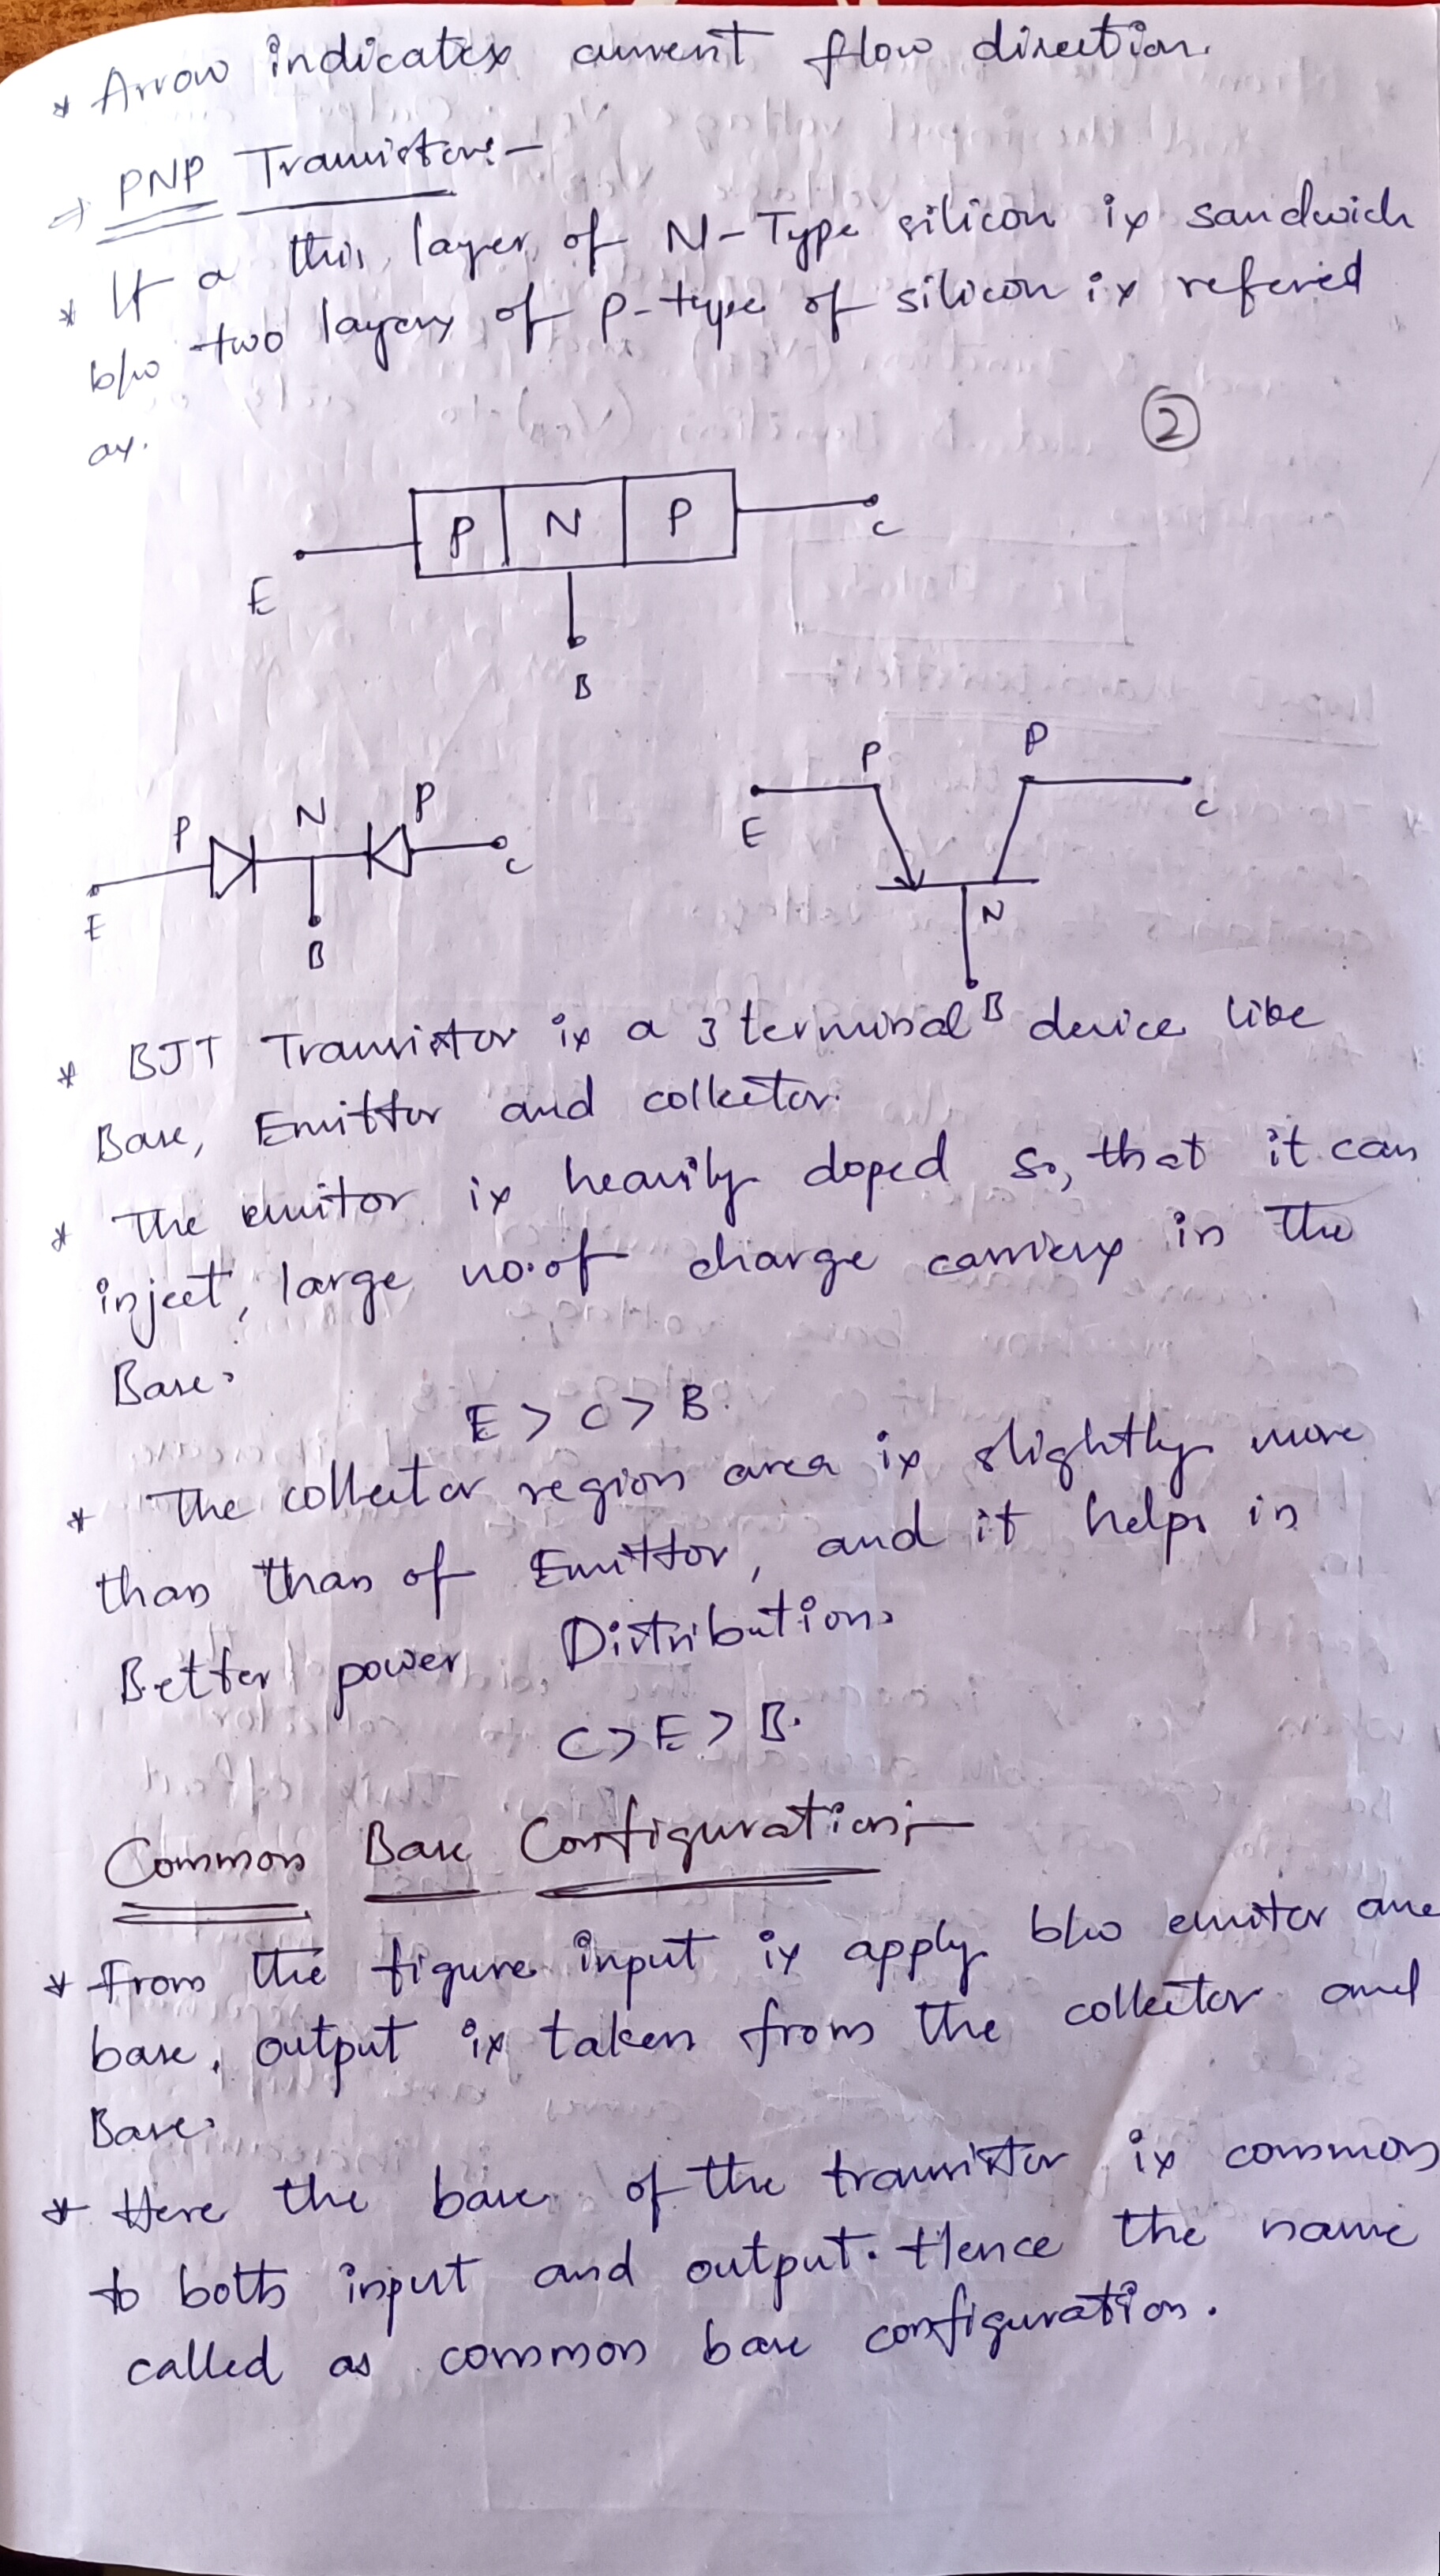 * Arrow indicates current flow direction.
⇒ PNP Transistor:-
* If a this layer of N-Type silicon is sandwich
b/w two layers of P-type of silicon is refered
as.
2
P N P
E
C
B
P N P
E
C
B
P P
E
C
N
B
* BJT Transistor is a 3 terminal device like
Base, Emitter and collector.
* The emitor is heavily doped so, that it can
inject, large no.of charge carriers in the
Base.
E > C > B.
* The collector region area is slightly more
than than of Emittor, and it helps in
Better power Distribution.
C > E > B.
Common Base Configuration:-
* From the figure input is apply b/w emiter and
base, output is taken from the collector and
Base.
* Here the base of the transistor is common
to both input and output. Hence the name
called as common base configuration.